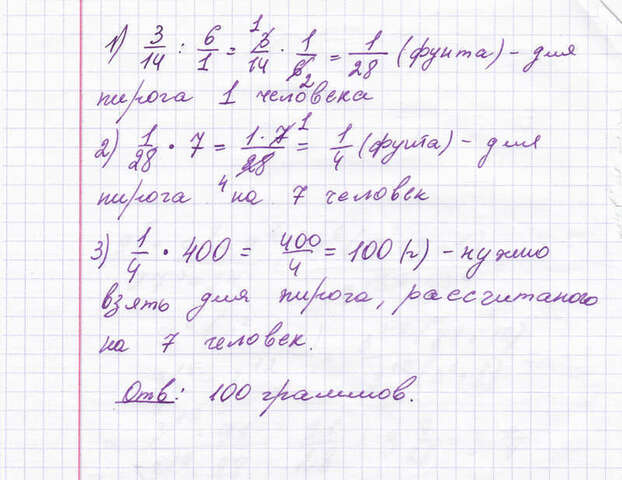 1) 3/14 : 6/1 = 3/14 · 1/6 = 1/28 (фунта) - для
пирога 1 человека
2) 1/28 · 7 = 1·7/28 = 1/4 (фунта) - для
пирога на 7 человек
3) 1/4 · 400 = 400/4 = 100 (г) - нужно
взять для пирога, рассчитаного
на 7 человек.
Отв: 100 граммов.